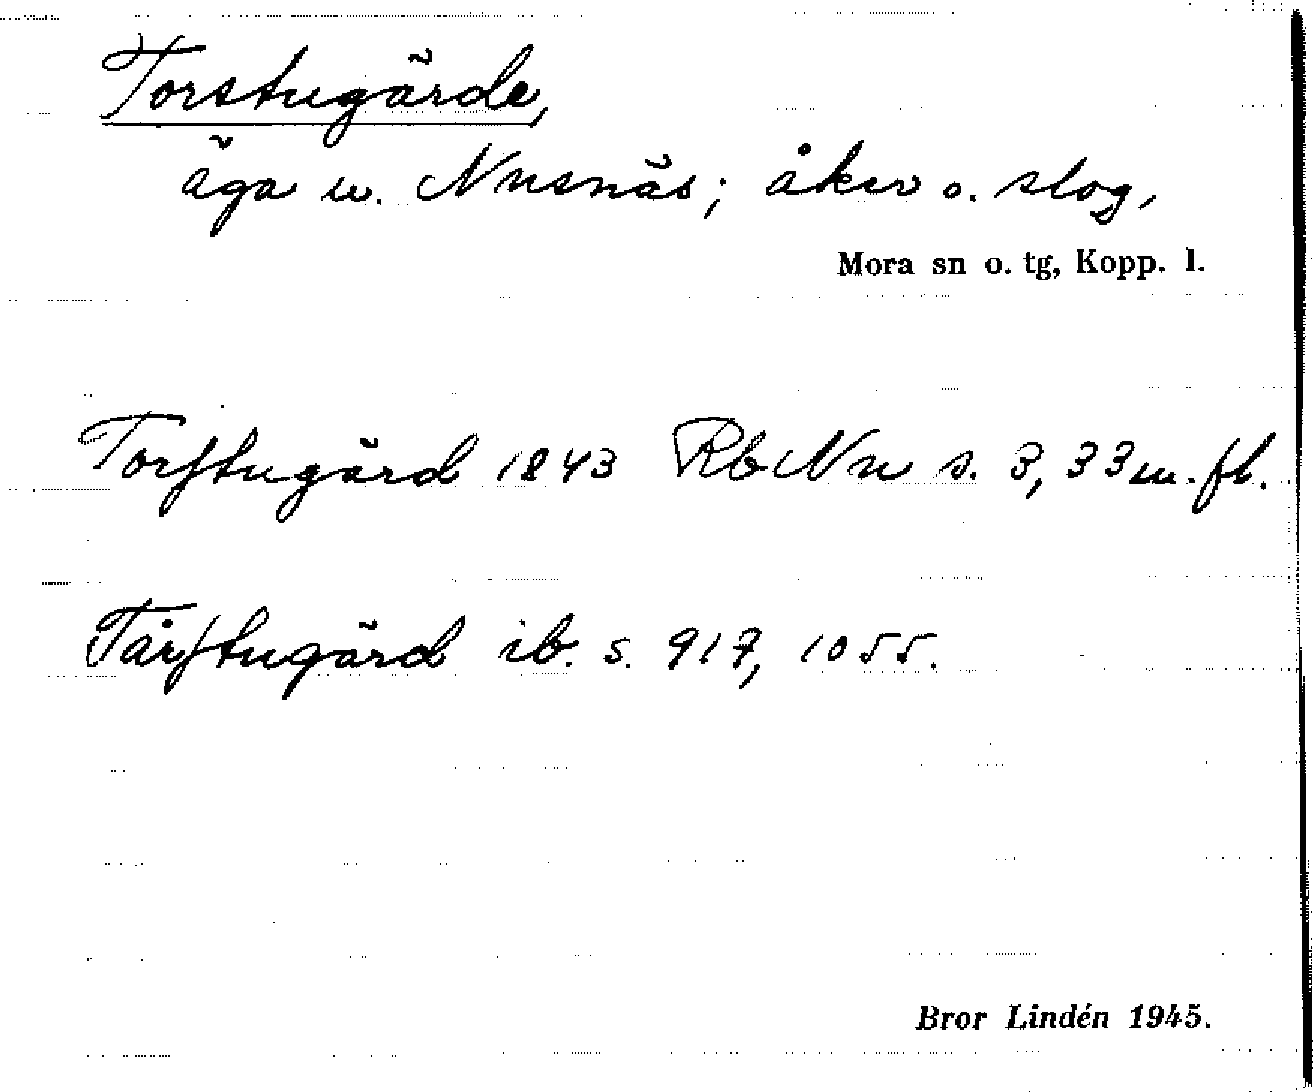 Torstugärde,
äga u. Nusnäs; åker o. slog,
Mora sn o. tg, Kopp. l.
Torſtugärd 1843 Rb Nu s. 3, 33 m. fl.
Tårſtugärd ib. s. 917, 1055.
Bror Lindén 1945.